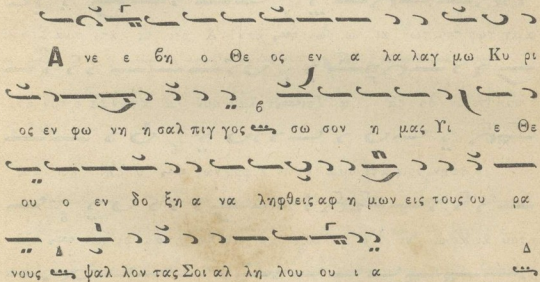 Α νε ε βη ο Θε ος εν α λα λαγ μω Κυ ρι
ος εν φω νη η σαλ πιγ γος σω σον η μας Υι ε Θε
ου ο εν δο ξη α να ληφθεις αφ η μων εις τους ου ρα
νους ψαλ λον τας Σοι αλ λη λου ου ι α